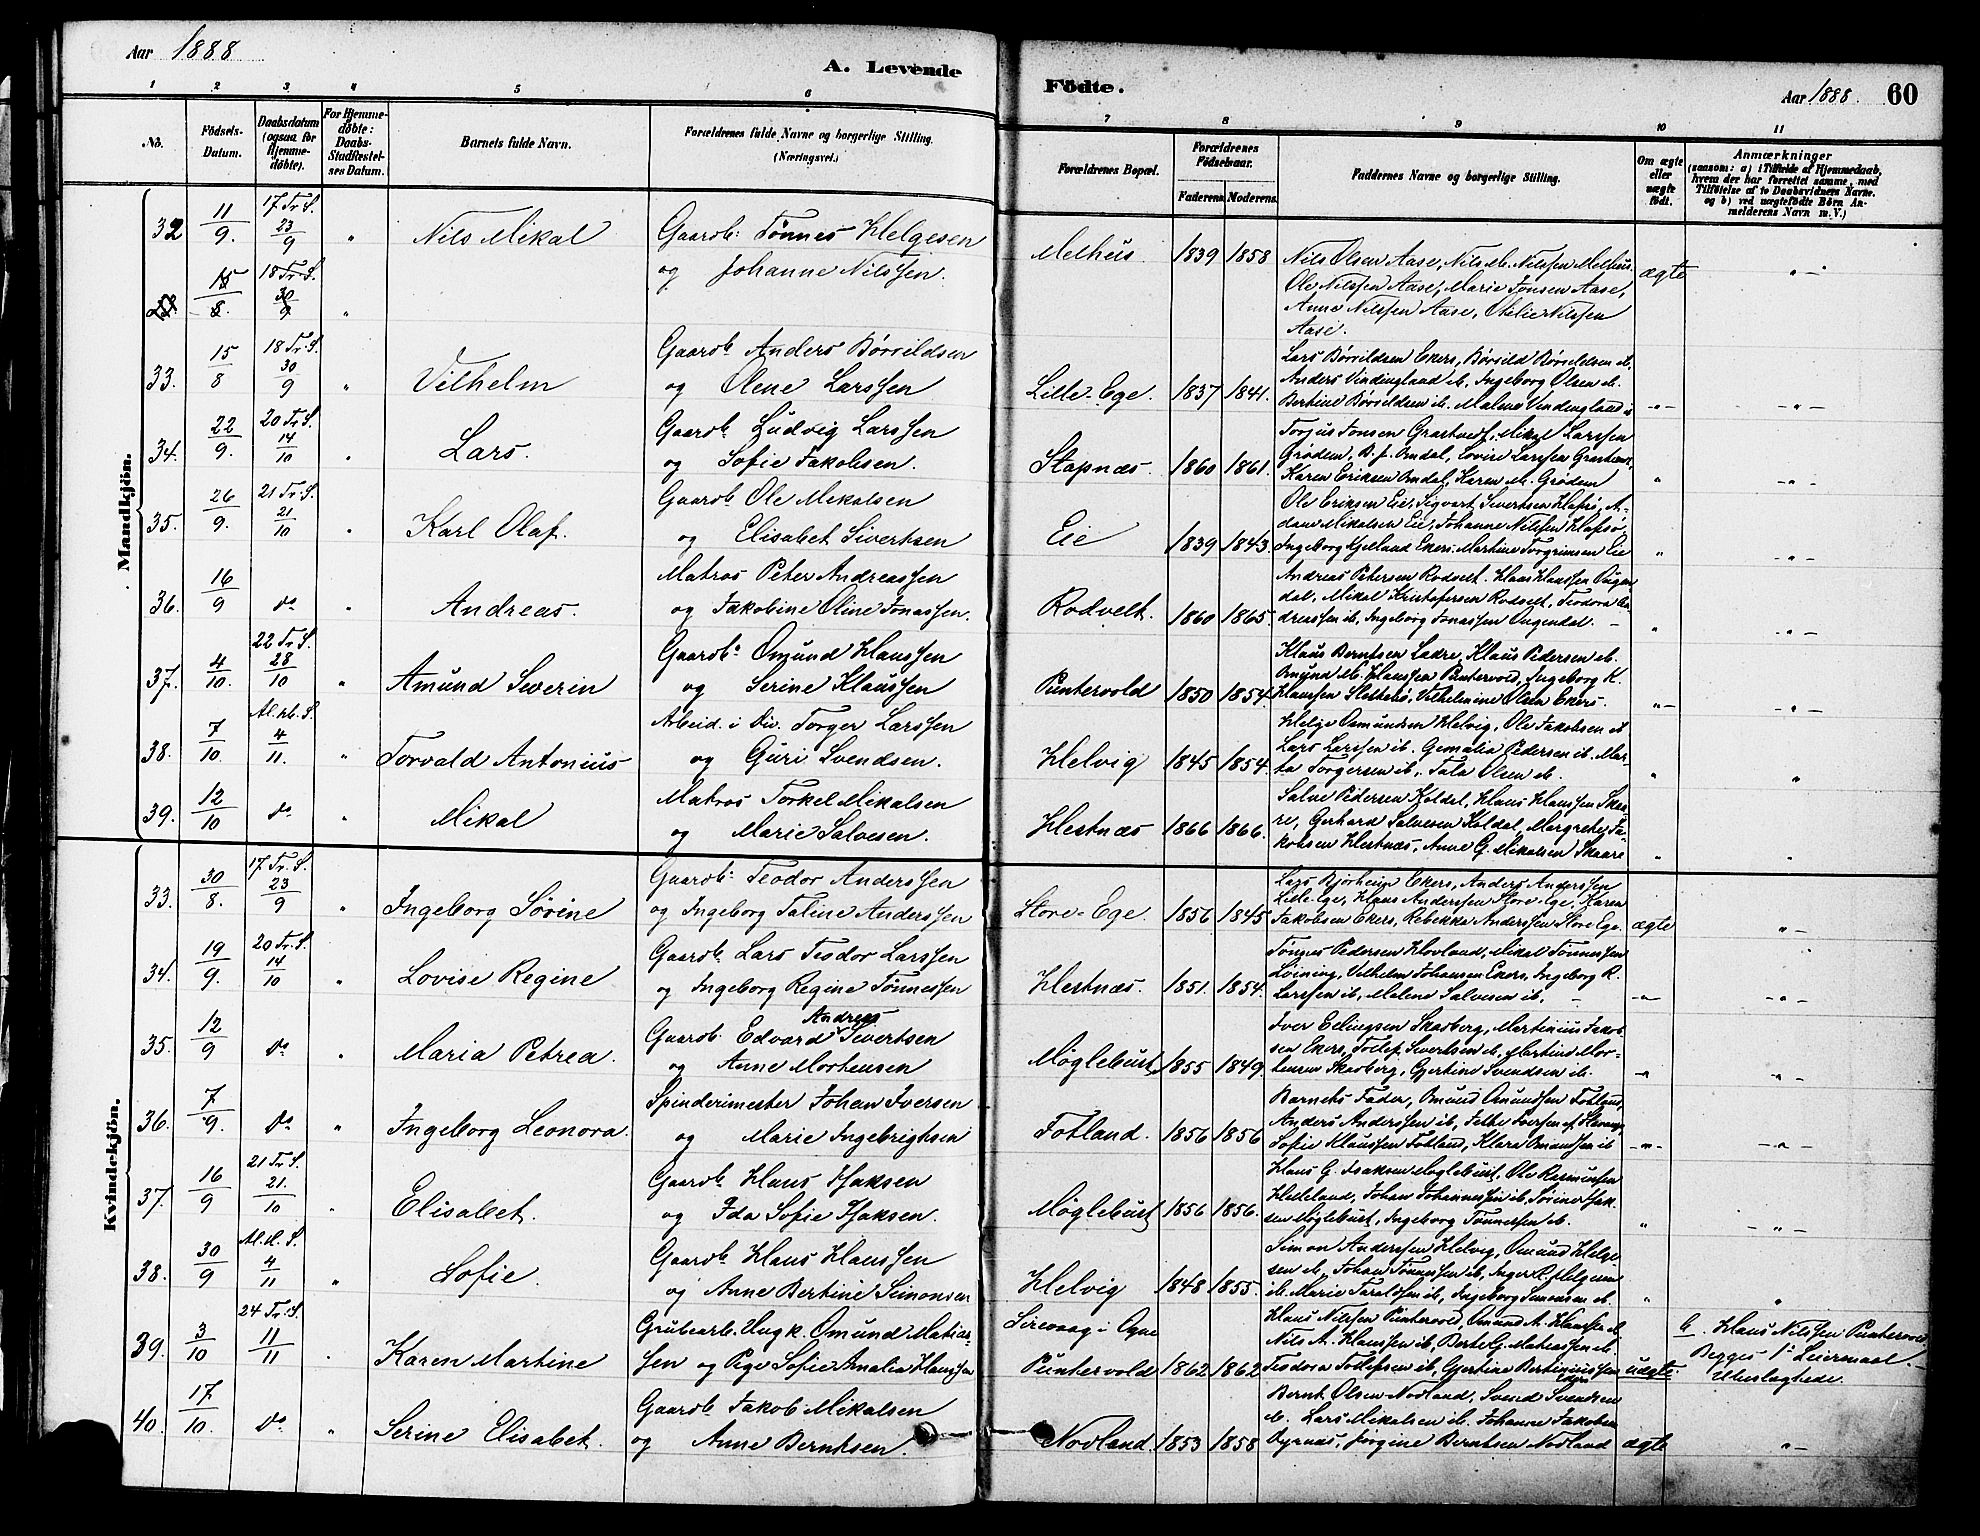 Aar 1888.
A. Levende
Födte.
Aar 1888. 60
1 2 3 4 5 6 7 8 9 10 11
No.
Födsels-Datum.
Daabsdatum (ogsaa for Hjemmedöbte).
For Hjemmedöbte: Daabs-Stadfæstelses Datum.
Barnets fulde Navn.
Forældrenes fulde Navne og borgerlige Stilling. (Næringsvei.)
Forældrenes Bopæl.
Forældrenes Födselsaar.
Faderens Moderens
Faddernes Navne og borgerlige Stilling.
Om ægte eller uægte födt.
Anmærkninger
(saasom: a) i Tilfælde af Hjemmedaab, hvem der har forrettet samme, med Tilföielse af to Daabsvidners Navne. og b) ved uægtefödte Börn Anmelderens Navn m.V.)
Mandkjön.
32 11/9. 17 Tr. S. 23/9 " Nils Mikal Gaarb: Tönnes Helgesen
og Johanne Nilssen.
Melhus 1839 1858 Nils Olsen Aase, Nils M. Nilssen Melhus.
Ole Nilssen Aase, Marie Jonsen Aase,
Anne Nilssen Aase, Otelie Nilssen
Aase.
ægte "
15/8. 18 Tr. S. 30/9 "
33. 15/8 18 Tr. S. 30/9 " Vilhelm Gaarb. Anders Børrildsen
og Olene Larssen
Lille-Ege. 1837 1841. Lars Børrildsen Ekers, Børrild Børrildsen ib,
Anders Vindingland ib, Ingeborg Olsen ib.
Bertine Børrildsen ib. Malene Vindingland ib
-"- -"-
34. 22/9. 20 Tr. S. 14/10 " Lars. Gaarb. Ludvig Larssen
og Sofie Jakobsen.
Stapnæs. 1860 1861. Torjus Jonsen Grastveit, Mikal Larssen
Grødem, B. J. Omdal, Lovise Larssen
Karen Eriksen Omdal, Karen M. Grødem
" -"-
35. 26/9. 21 Tr. S. 21/10 " Karl Olaf. Gaarb. Ole Mikalsen
og Elisabet Sivertsen
Eie 1839 1843. Ole Eriksen Eie, Sigvart Sivertsen Hafsø, A-
dam Mikalsen Eie, Johanne Nilssen Hafsø,
Ingeborg Kjelland Ekers. Martine Torgrimsen Eie
" -"-
36. 16/9 do " Andreas. Matros Peter Andreassen
og Jakobine Oline Jonassen.
Rodvelt. 1860 1865. Andreas Petersen Rodvelt. Hans Hanssen Pugen
dal, Mikal Kristofersen Rodvelt, Teodora An-
dreassen ib, Ingeborg Jonassen
" -"-
37. 4/10. 22 Tr. S. 28/10 " Amund Severin Gaarb. Omund Hanssen
og Serine Klaussen
Puntervold 1850 1854 Klaus Berntsen Ladre, Klaus Pedersen ib.
Omund M. Hanssen Puntervold, Ingeborg K.
Hanssen Slettebø, Vilhelmine Olsen Ekers.
"- -"-
38. 7/10. Al. hl. S. 4/11. " Torvald Antonius Arbeid. i Div. Torger Larssen
og Guri Svendsen.
Helvig 1845 1854. Helge Osmundsen Helvig, Ole Jakobsen ib
Lars Larssen ib. Gemalia Pedersen ib. Mar-
ta Torgersen ib,. Tala Olsen ib.
" "
39. 12/10 do " Mikal Matros Torkel Mikalsen
og Marie Salvesen.
Hestnæs 1866 1866. Salve Pedersen Koldal, Hans Hanssen Skaa-
re, Gerhard Salvesen Koldal, Margrete Ja-
kobsen Hestnæs, Anne G. Mikalsen Skaare
" "
Kvindekjön.
33. 30/8. 17 Tr. S. 23/9 " Ingeborg Sørine Gaarb: Teodor Anderssen
og Ingeborg Taline Anderssen
Store-Ege. 1856 1845 Lars Bjorheim Ekers, Anders Anderssen
Lille-Ege, Hans Anderssen Store-Ege, Karen
Jakobsen Ekers, Rebekka Anderssen Store Ege.
ægte "-
34. 19/9. 20 Tr. S. 14/10 " Lovise Regine Gaarb. Lars Teodor Larssen
og Ingeborg Regine Tönnessen
Hestnæs. 1851. 1854. Tönnes Pedersen Hovland, Mikal Tönnessen
Løining, Vilhelm Johansen Ekers, Ingeborg R.
Larssen ib, Malene Salvesen ib.
-"- -"-
35. 12/9 do " Maria Petrea. Gaarb. Edvard Andreas Sivertsen
og Anne Mortensen
Møglebust 1855 1849. Iver Erlingsen Skadberg, Martinius Jakob-
sen Ekers, Tollef Sivertsen ib, Martine Mor-
tensen Skadberg, Gjertine Svendsen ib.
-"- "-
36. 7/9. do " Ingeborg Leonora. Spinderimester Johan Iversen
og Marie Ingebrigtsen
Fotland. 1856 1856 Barnets Fader, Omund Omundsen Fotland,
Anders Anderssen ib, Iversen af Stavanger
Sofie Klaussen Fotland, Klara Omundsen ib
-"- -"-
37. 16/9 21 Tr. S. 21./10 " Elisabet. Gaarb. Hans Isaksen
og Ida Sofie Isaksen.
Møglebust 1856 1856. Hans G. Isaksen Møglebust, Ole Rasmussen
Helleland, Johan Johannessen ib, Isak-
sen Møglebust, Ingeborg Tönnessen ib.
" -"-
38. 30/9 Al. H. S. 4/11 " Sofie. Gaarb. Hans Hanssen
og Anne Bertine Simonsen
Helvig 1848 1855. Simon Anderssen Helvig, Omund Helge-
sen ib, Johan Tönnessen ib, Inger R. Helgesen
ib. Marie Taraldsen ib, Ingeborg Simonsen ib.
" "
39. 3/10 24 Tr. S. 11/11 " Karen Martine Grubearb. Ungk. Omund Matias-
sen og Pige Sofie Amalia Hanssen
Sirevaag i Ogne
Puntervold 1862 1862 Hans Nilssen Puntervold, Omund A. Hanssen ib.
Nils A. Hanssen ib, Berte G. Matiassen ib.
Teodora Tollefsen ib, Gjertine Bertiniussen
uægte. b. Hans Nilssen Puntervold
Begges 1ste Leiermaal.
40. 17/10. do " Serine Elisabet. Gaarb. Jakob Mikalsen
og Anne Berntsen.
Nodland. 1853 1858 Bernt Olsen Nodland, Svend Svendsen
ib. Lars Mikalsen ib. Johanne Jakobsen
Jørgine Berntsen Nodland
ægte "-